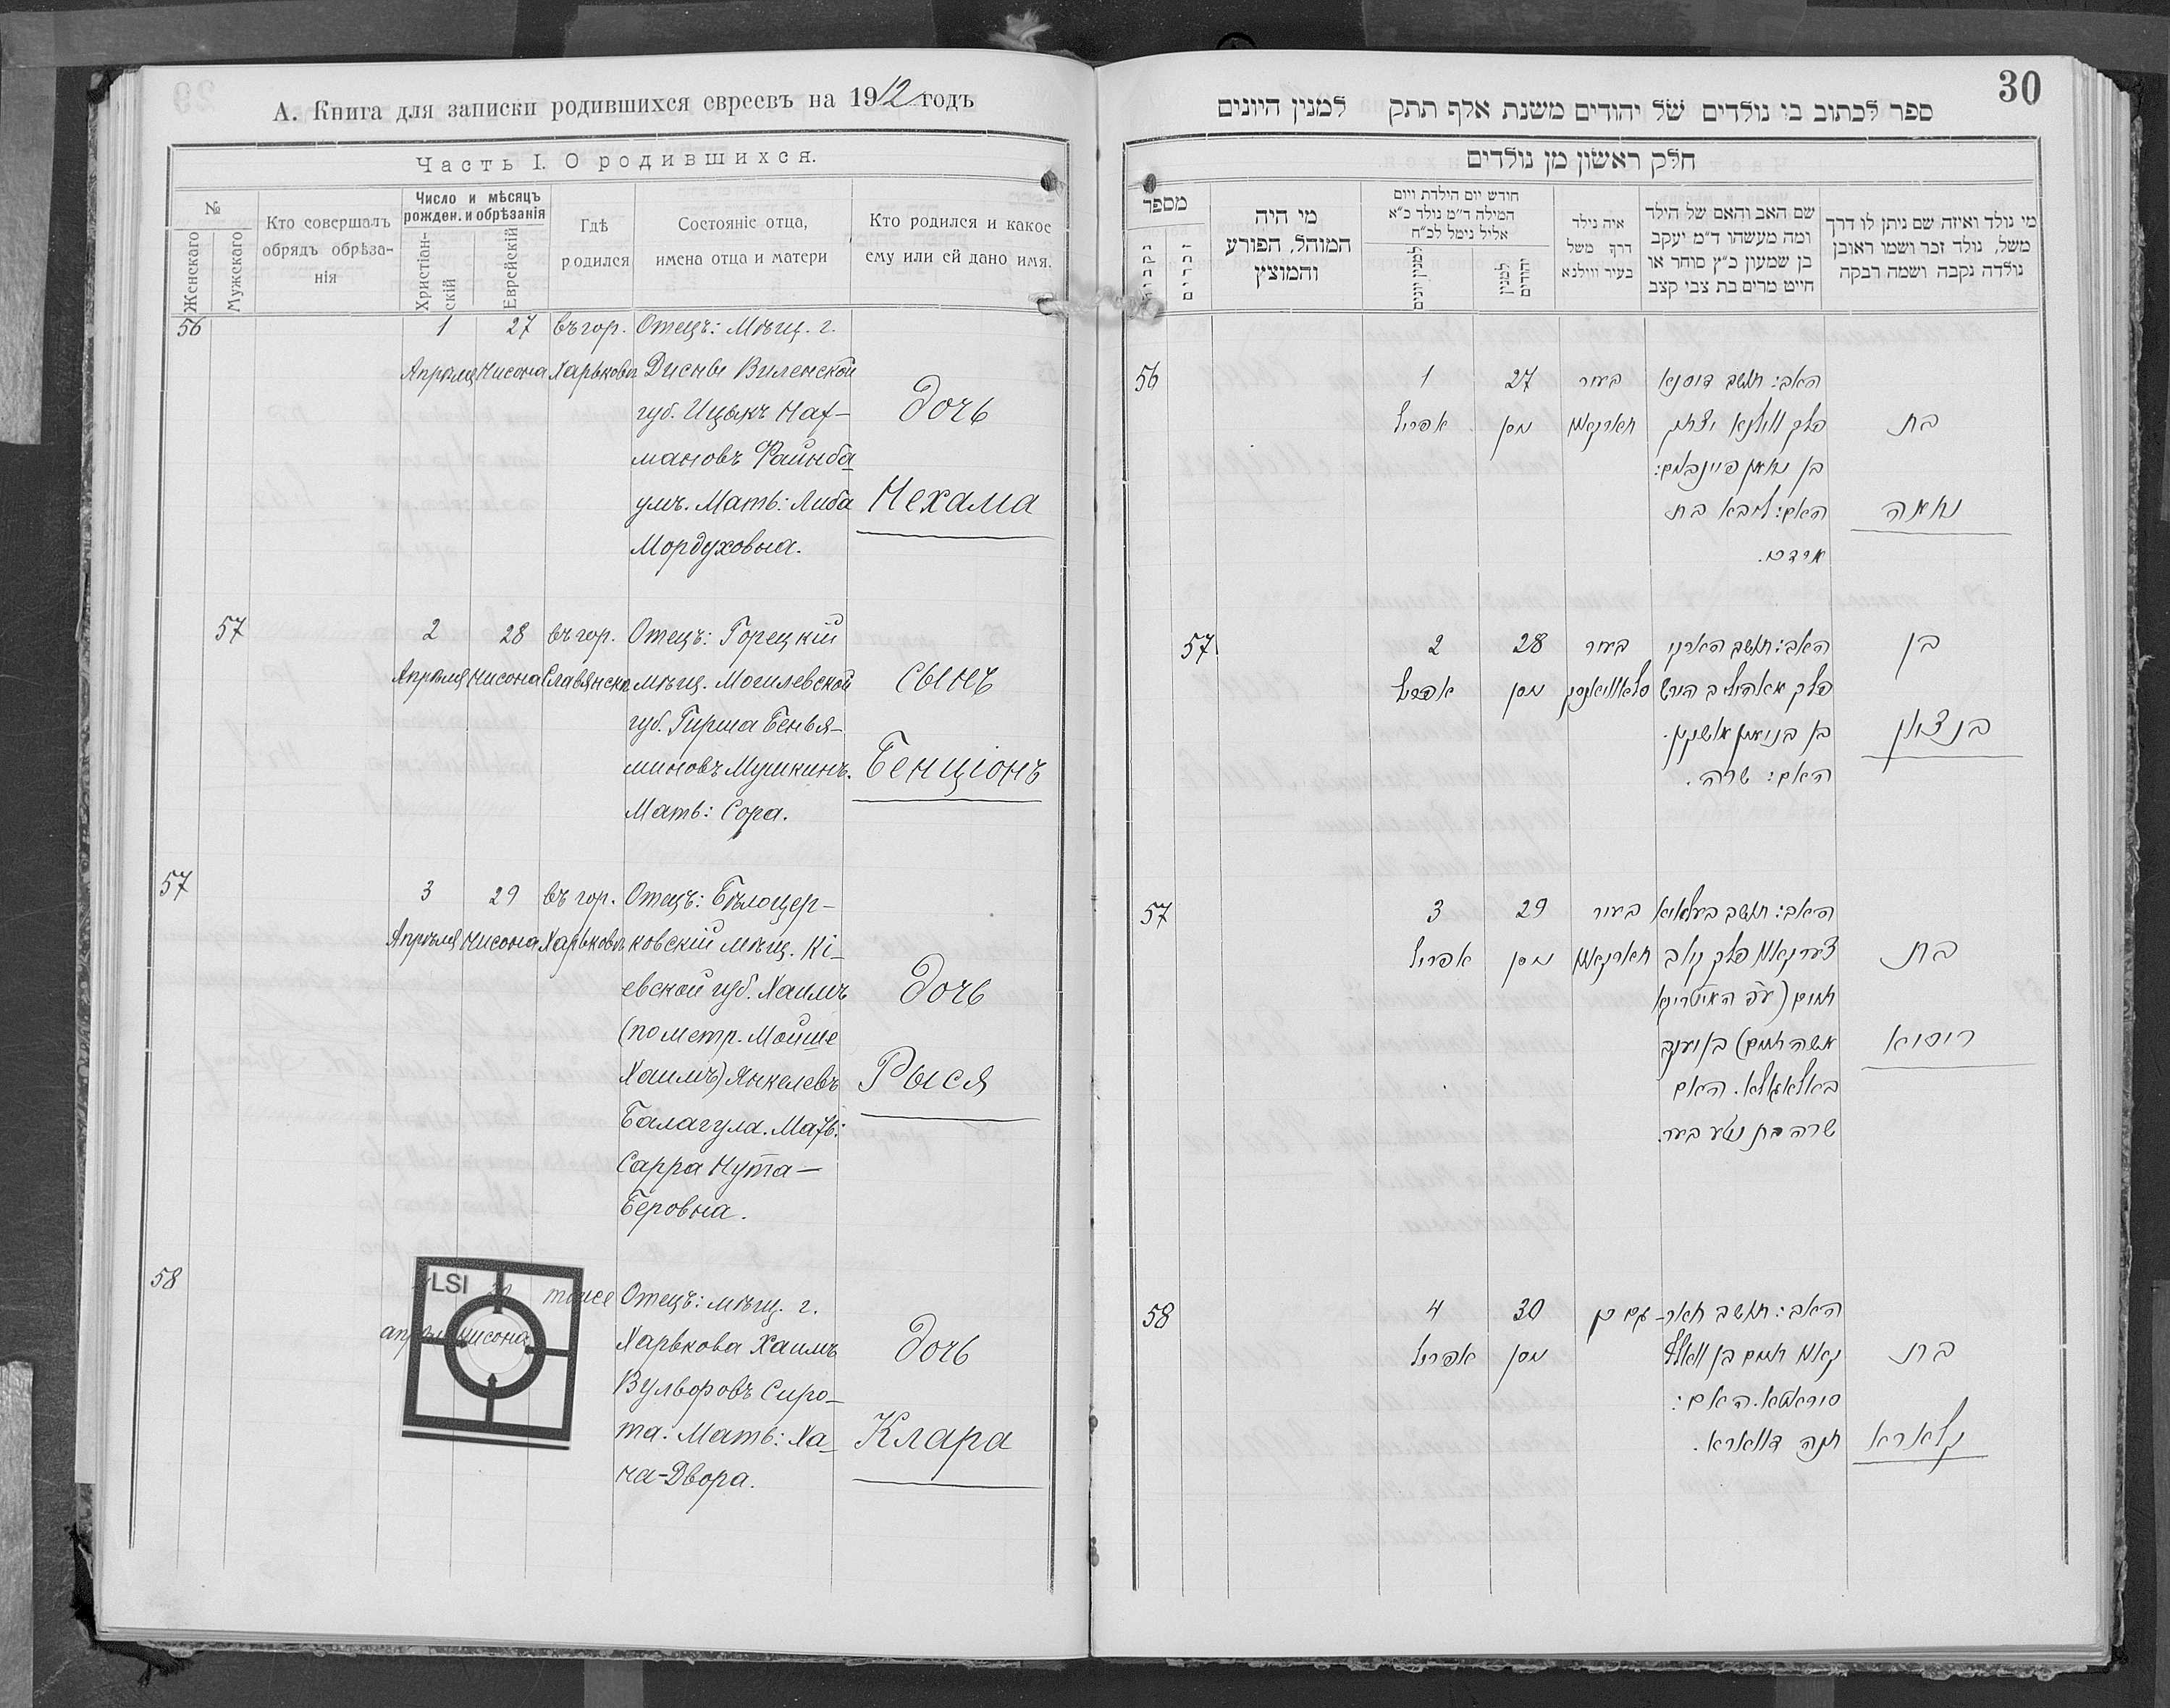 А. Книга для записки родившихся евреевъ на 1912 годъ
Часть I. О родившихся.
№
Женскаго
Мужскаго
Кто совершалъ
обрядъ обрѣза-
нія
Число и мѣсяцъ
рожден. и обрѣзанія
Христіан-
скій
Еврейскій
Гдѣ
родился
Состояніе отца,
имена отца и матери
Кто родился и какое
ему или ей дано имя.
56
1
Апрѣля
27
Нисона
въ гор.
Харьковѣ
Отецъ: Мѣщ. г.
Дисны Виленской
губ. Ицыкъ Нах-
мановъ Файнба
умъ. Мать: Либа
Мордуховна.
Дочь
Нехама
57
2
Апрѣля
28
Нисона
въ гор.
Славянскѣ
Отецъ: Горецкій
мѣщ. Могилевской
губ. Гирша Бенья-
миновъ Мушкинъ.
Мать: Сора.
Сынъ
Бенціонъ
57
3
Апрѣля
29
Нисона
въ гор.
Харьковѣ
Отецъ: Бѣлоцер-
ковскій мѣщ. Кі-
евской губ. Хаимъ
(по метр. Мойше
Хаимъ) Янкелевъ
Балагула. Мать:
Сарра Нута-
Беровна.
Дочь
Рыся
58
LSI
30
Нисона
тоже
Отецъ: мѣщ. г.
Харькова Хаимъ
Вульфовъ Сиро-
та. Мать: Ха-
на-Двора.
Дочь
Клара
30
ספר לכתוב בו נולדים של יהודים משנת אלף תתק למנין היונים
חלק ראשון מן נולדים
מי נולד ואיזה שם ניתן לו דרך
משל, נולד זכר ושמו ראובן
נולדה נקבה ושמה רבקה
שם האב והאם של הילד
ומה מעשהו ד״מ יעקב
בן שמעון כ״ץ סוחר או
חייט מרים בת צבי קצב
איה נילד
דרך משל
בעיר ווילנא
חודש יום הילדת ויום
המילה ד״מ נולד כ״א
אליל נימל לכ״ח
למנין
יהודים
למנין יונים
מי היה
המוהל, הפורע
והמוצץ
מספר
זכרים
נקבות
56
1
אפריל
27
ניסן
בעיר
חארקאוו
האב: תושב דיסנא
פלך ווילנא יצחק
בן נחמן פיינבוים:
האם: ליבא בת
מרדכי.
בת
נחמה
57
2
אפריל
28
ניסן
בעיר
סלאוויאנסק
פלך מאהיליב הירש
בן בנימין מושקין.
האם: שרה.
בן
בנציון
57
3
אפריל
29
ניסן
בעיר
חארקאוו
צערקאוו פלך קיוב
חיים (עפ המעטריקא
משה חיים) בן יעקב
באלאגאלא. האם
שרה בת נטע בער.
בת
ריסיא
58
4
אפריל
30
ניסן
גם כן
האב: תושב חאר-
קאוו חיים בן וואלף
סיראטא. האם:
חנה דווארא.
בת
קלארא